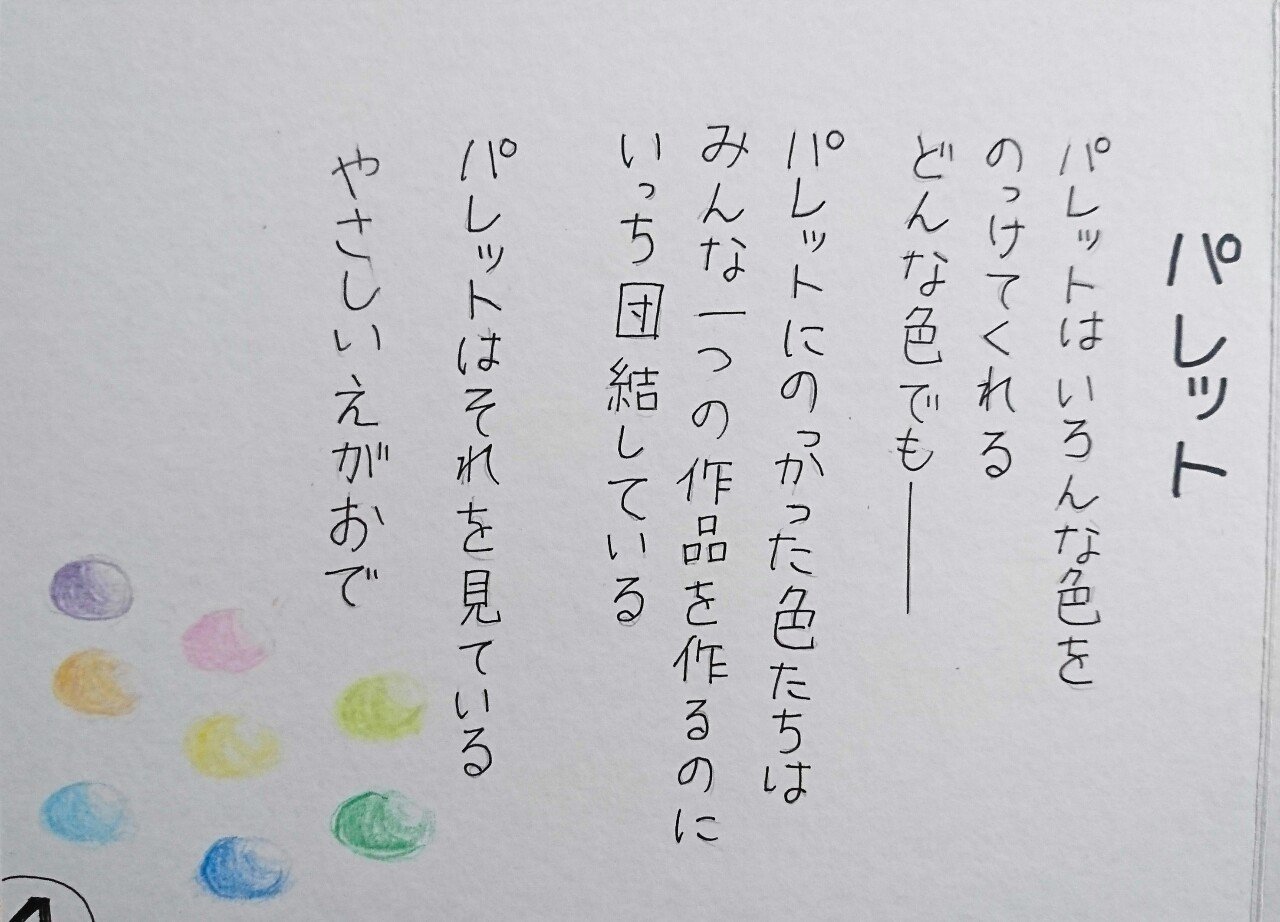 パレット
パレットはいろんな色を
のっけてくれる
どんな色でも――
パレットにのっかった色たちは
みんな一つの作品を作るのに
いっち団結している
パレットはそれを見ている
やさしいえがおで